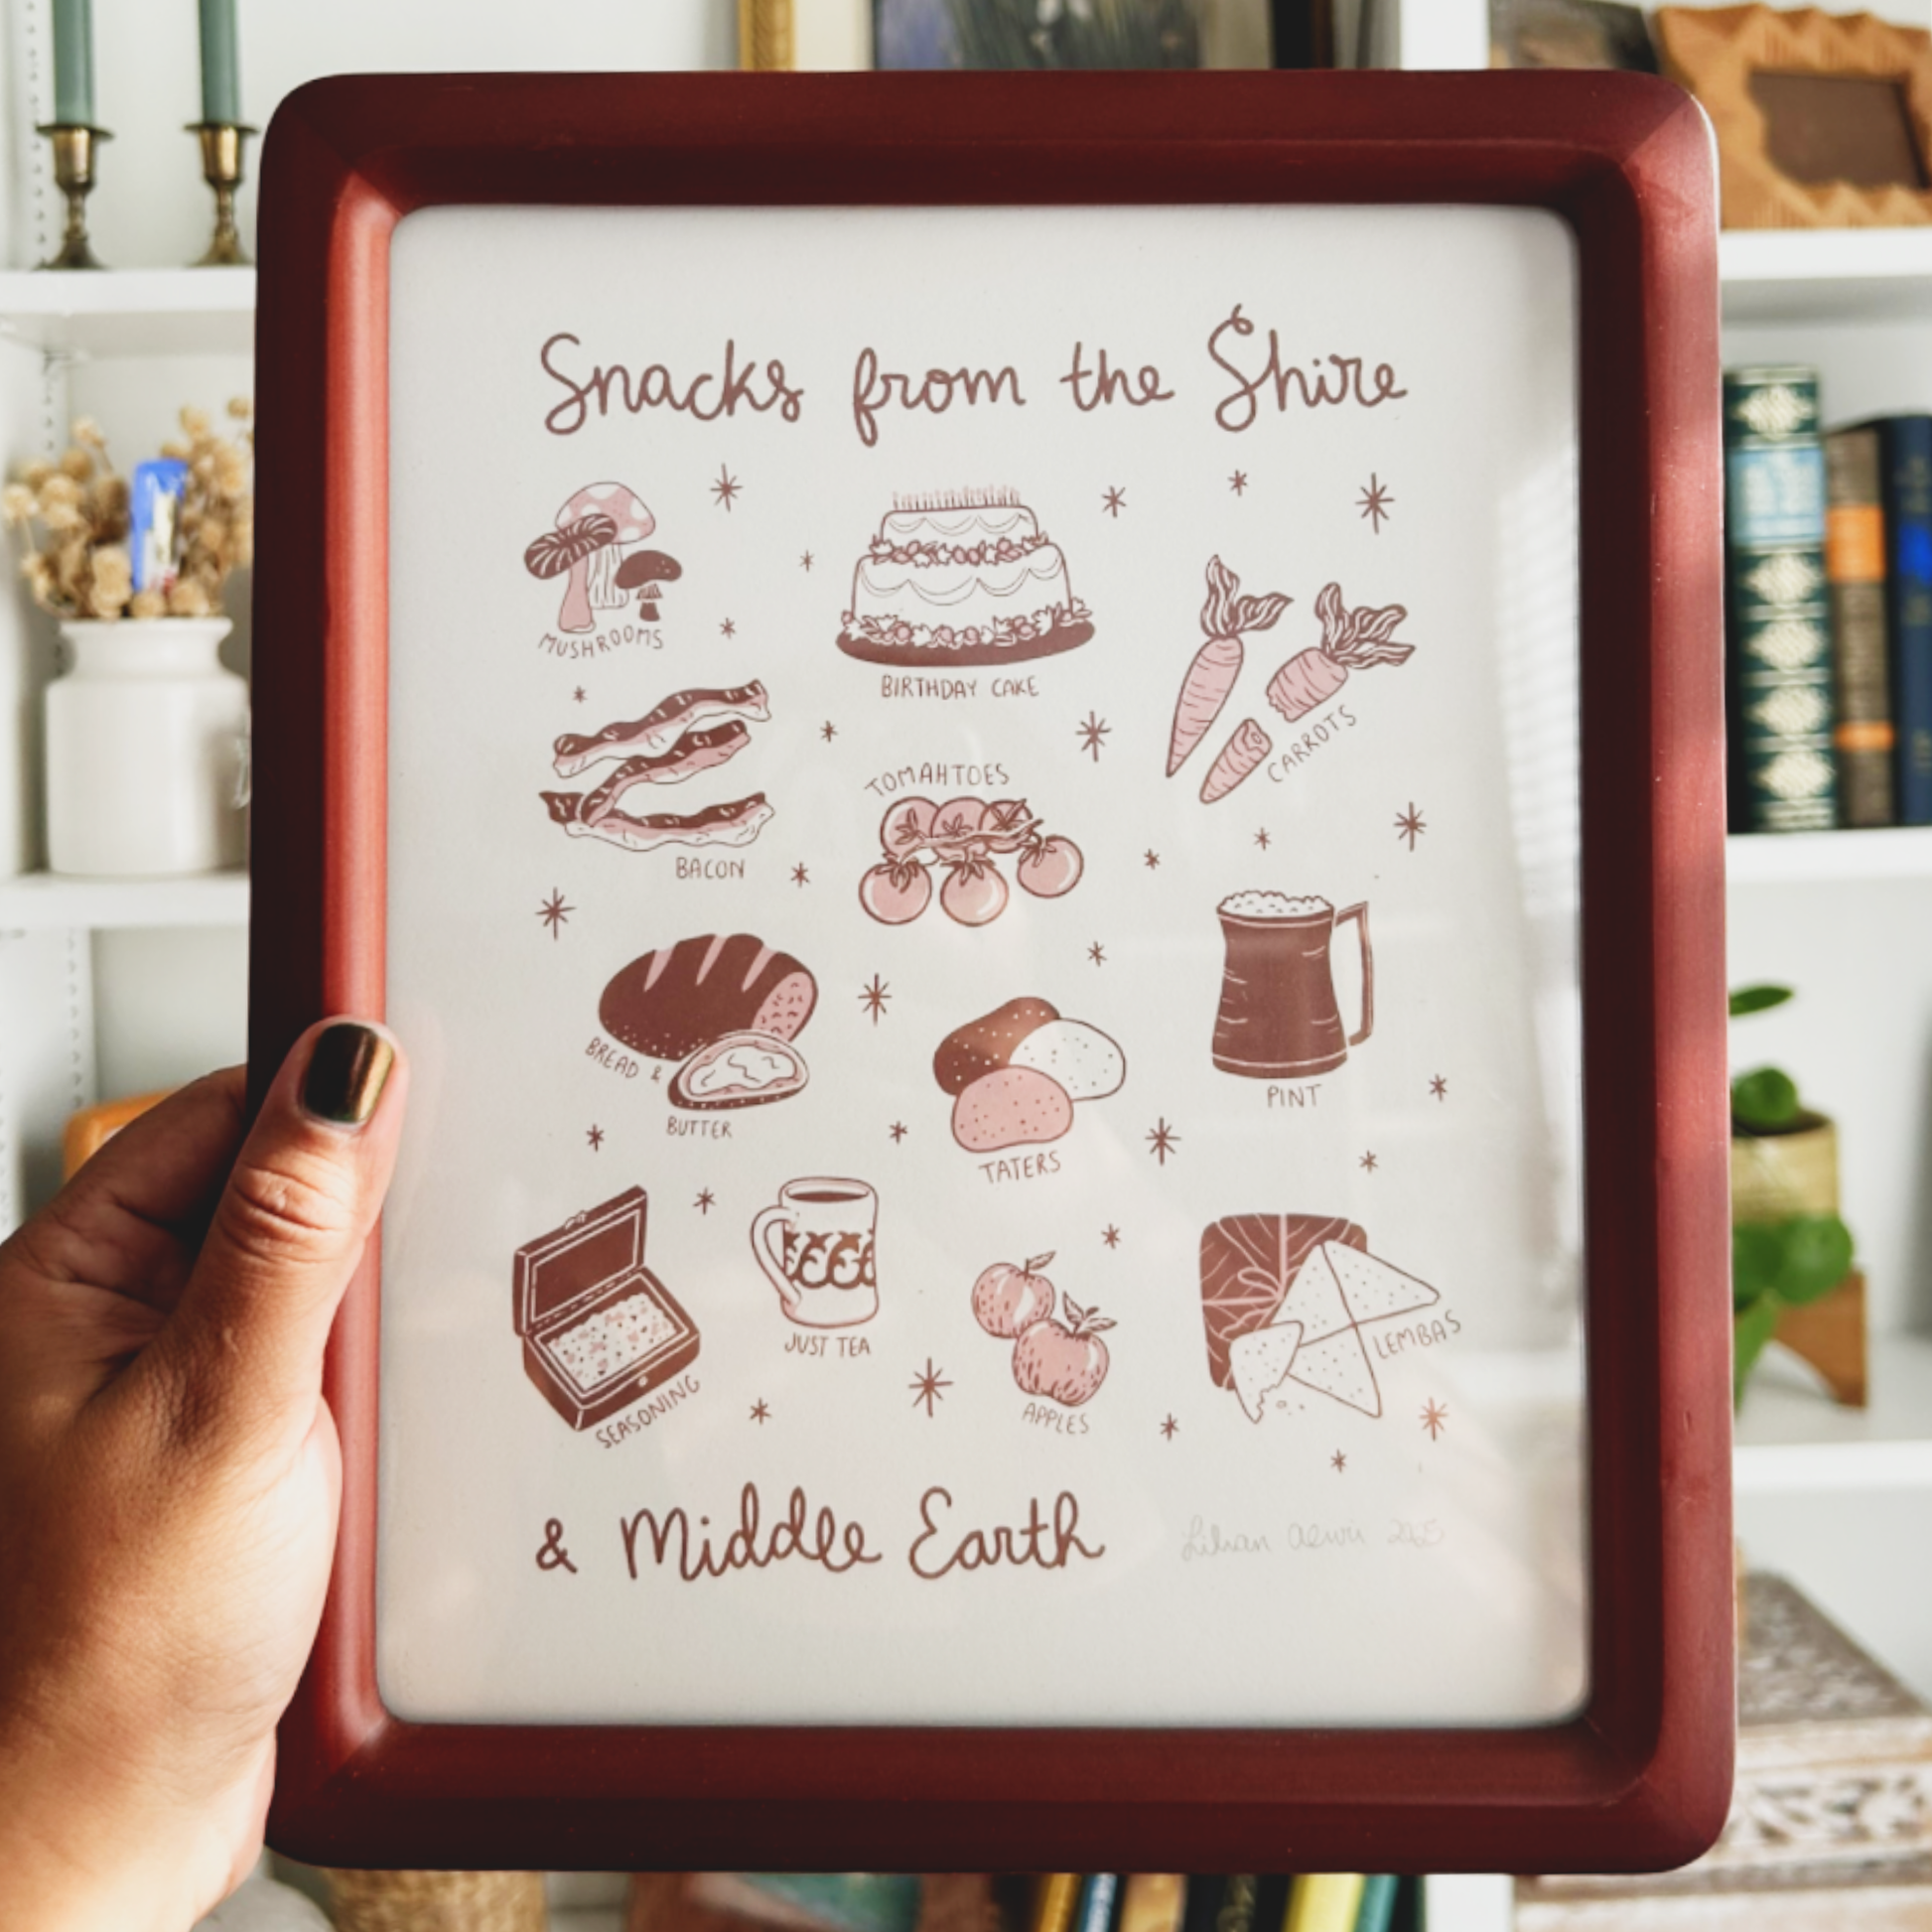 Snacks from the Shire
MUSHROOMS
BIRTHDAY CAKE
CARROTS
BACON
TOMAHTOES
BREAD &
BUTTER
TATERS
PINT
SEASONING
JUST TEA
APPLES
LEMBAS
& Middle Earth
Lilian 2025